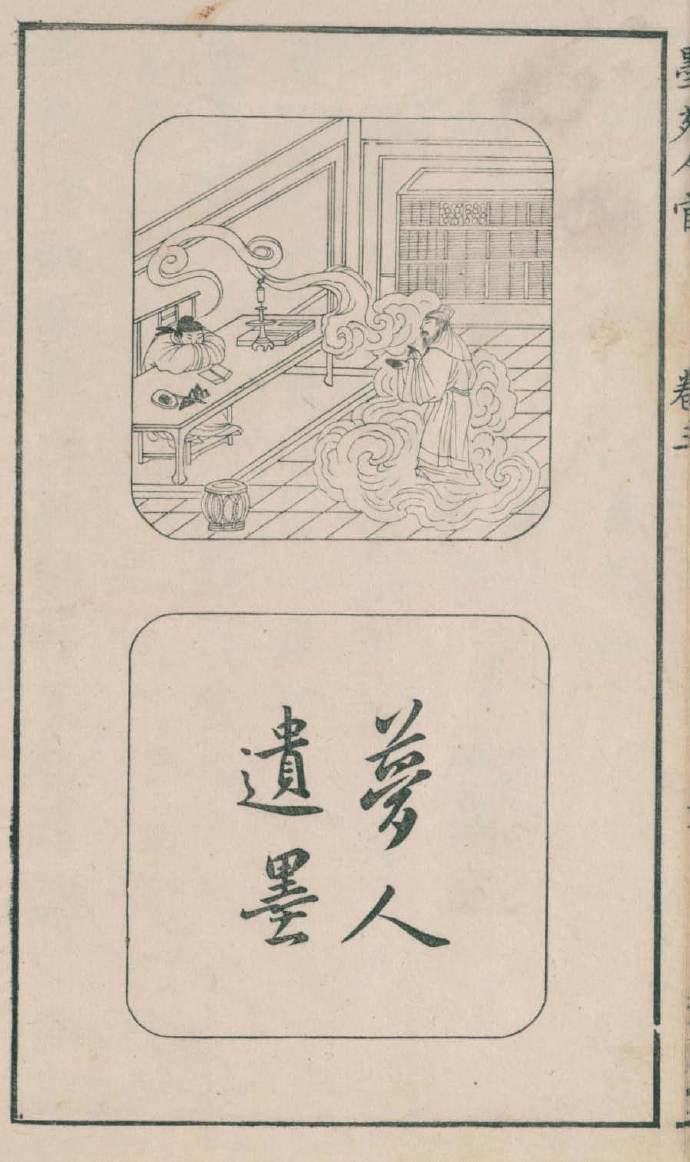 墨苑人官 卷
夢人
遺墨